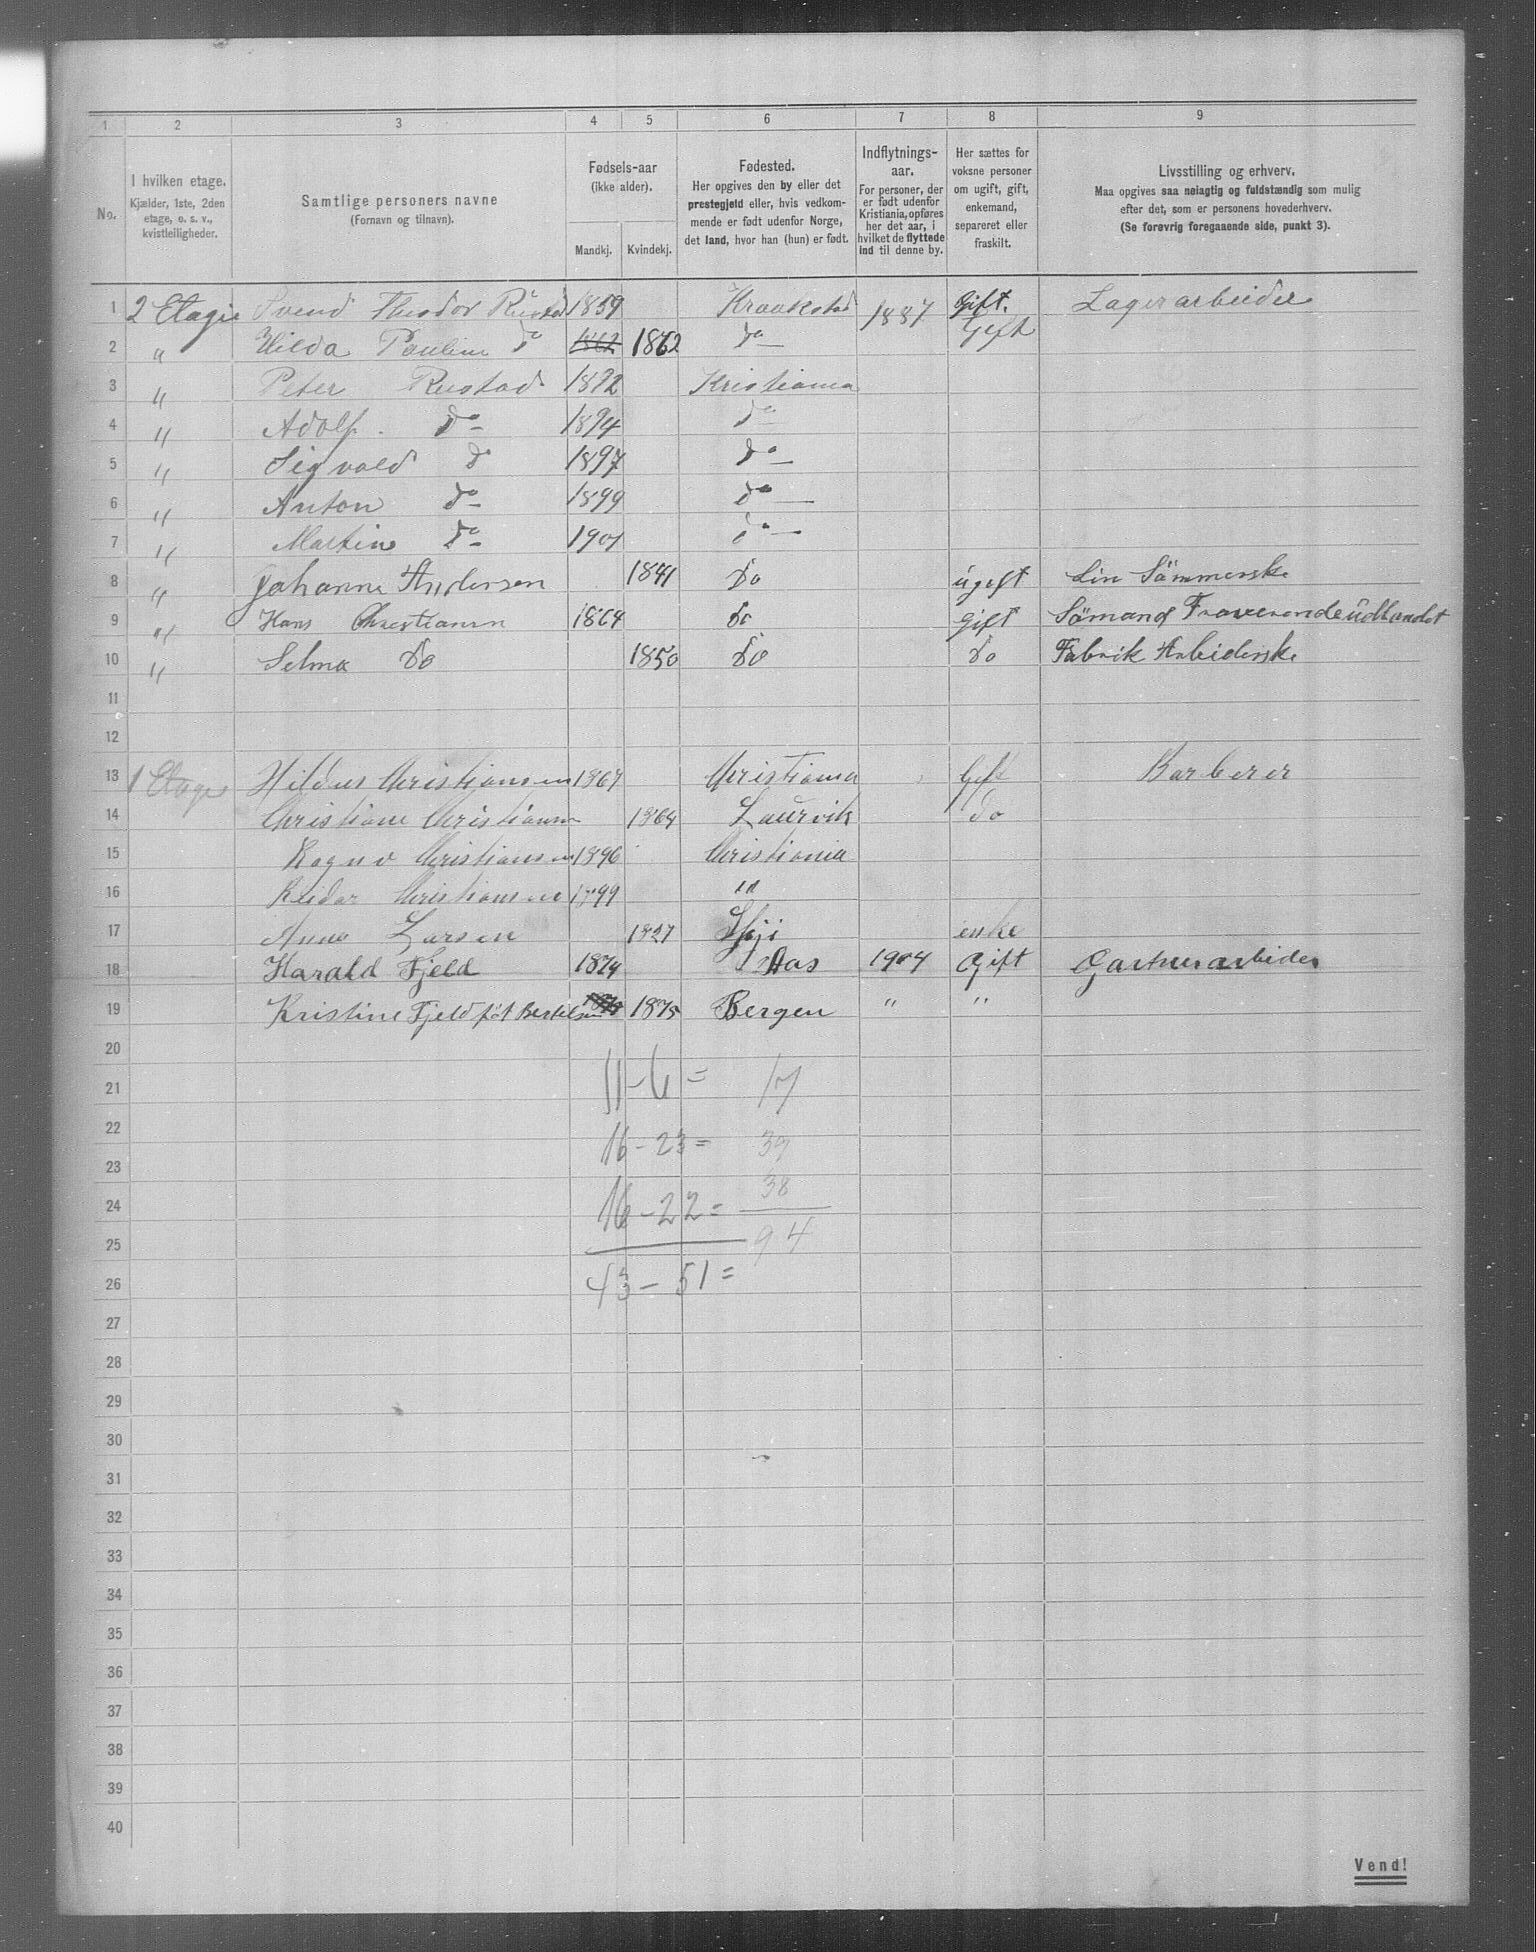 1 2 3 4 5 6 7 8 9
No.
I hvilken etage.
Kjælder, 1ste, 2den
etage, o. s. v.,
kvistleiligheder.
Samtlige personers navne
(Fornavn og tilnavn).
Fødsels-aar
(ikke alder).
Mandkj. Kvindekj.
Fødested.
Her opgives den by eller det
prestegjeld eller, hvis vedkom-
mende er født udenfor Norge,
det land, hvor han (hun) er født.
Indflytnings-
aar.
For personer, der
er født udenfor
Kristiania, opføres
her det aar, i
hvilket de flyttede
ind til denne by.
Her sættes for
voksne personer
om ugift, gift,
enkemand,
separeret eller
fraskilt.
Livsstilling og erhverv.
Maa opgives saa nøiagtig og fuldstændig som mulig
efter det, som er personens hovederhverv.
(Se forøvrig foregaaende side, punkt 3).
1 2 Etagie Svend Theodor Rustad 1859 Kraakstad 1887 Gift. Lagerarbeider
2 " Hilda Pauline do 1862 1862 do Gift
3 " Peter Rustad 1892 Kristiania
4 " Adolf. do 1894 do
5 " Sigvald d 1897 do
6 " Anton do 1899 do
7 " Martin do 1901 do
8 " Johanne Andersen 1841 Do ugift Lin Sömmerske
9 " Hans Christiansen 1864 do Gift Sömand Fraverende üdlandet
10 " Selma do 1850 do do Fabrik Arbeiderske
11
12
13 1 Etage Hildus Christiansen 1867 Christiania Gift Barberer
14 Christiane Christiansen 1864 Laurvik do
15 Ragnv Christiansen 1896 Christiania
16 Reidar Christiansen 1899 "
17 Anna Larsen 1827 enke
18 Harald Fjeld 1874 Aas 1904 Gift Gartnerarbeider
19 Kristine Fjeld föt Bertelsen 1875 1875 Bergen " "
20
21 11-6= 17
22 16-23= 39
23
24 16-22= 38
25 94
26 43-51=
27
28
29
30
31
32
33
34
35
36
37
38
39
40
Vend!